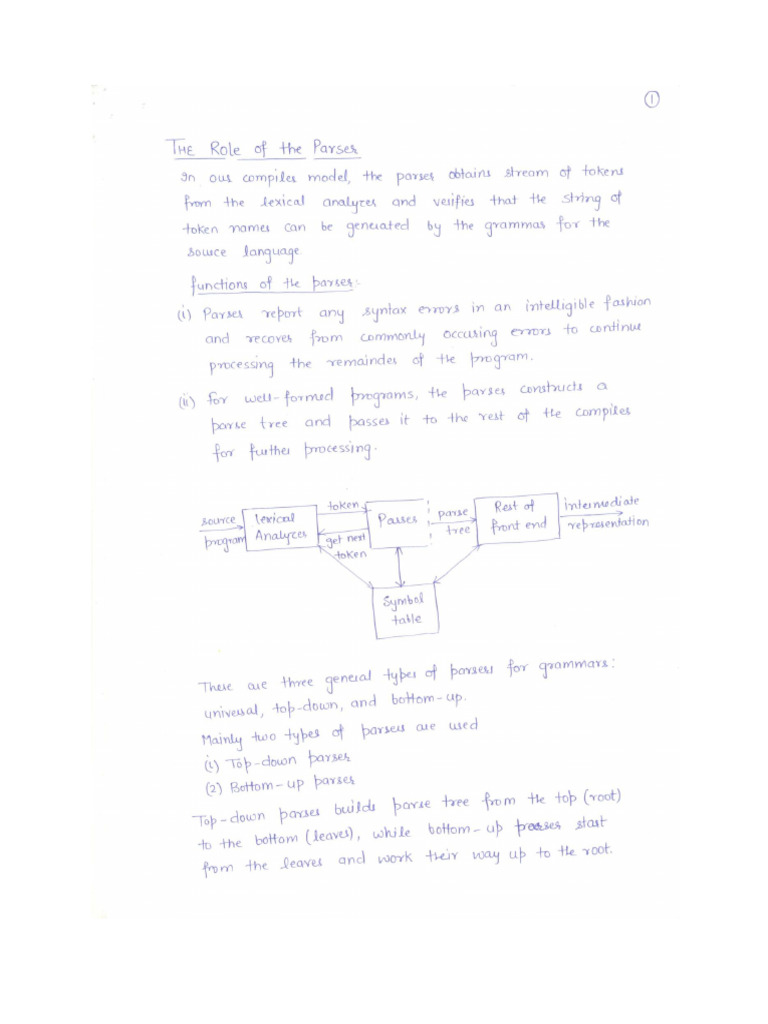 1
THE Role of the Parser
In our compiler model, the parser obtains stream of tokens
from the lexical analyzer and verifies that the string of
token names can be generated by the grammar for the
source language.
functions of the parser:
(i) Parser report any syntax errors in an intelligible fashion
and recover from commonly occuring errors to continue
processing the remainder of the program.
(ii) for well-formed programs, the parser constructs a
parse tree and passes it to the rest of the compiler
for further processing.
source program
Lexical Analyzer
token
get next token
Parser
parse tree
Rest of front end
intermediate representation
Symbol table
There are three general types of parsers for grammars:
universal, top-down, and bottom-up.
Mainly two types of parsers are used
(1) Top-down parser
(2) Bottom-up parser
Top-down parser builds parse tree from the top (root)
to the bottom (leaves), while bottom-up parser start
from the leaves and work their way up to the root.